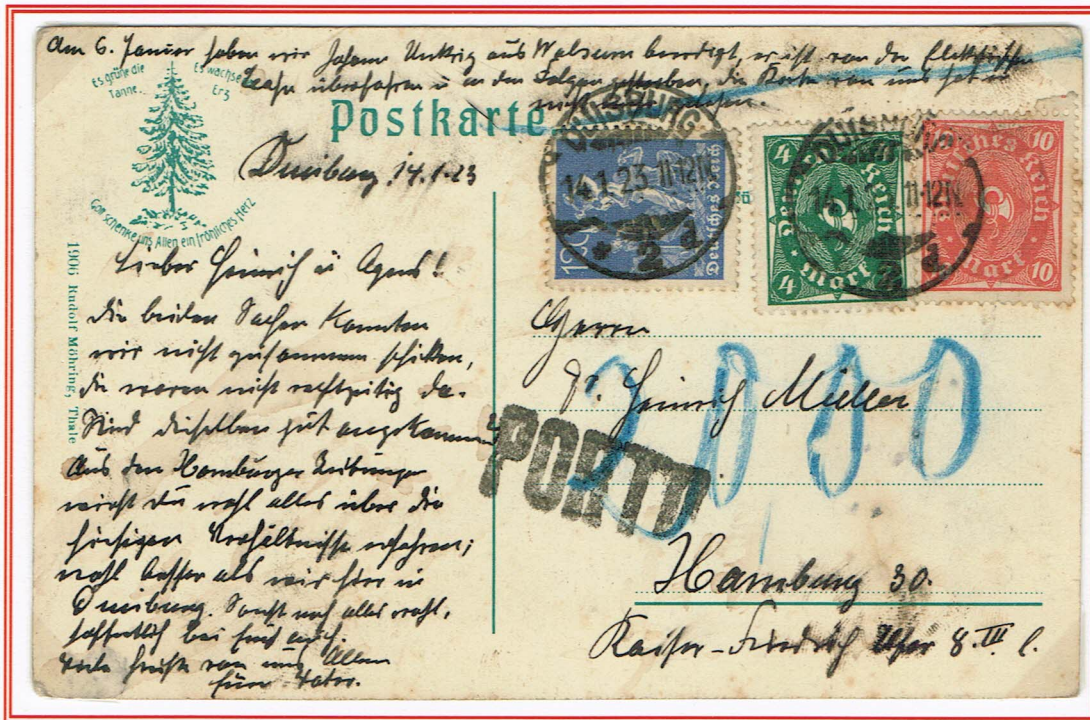 Am 6. Januar haben wir Johann Unkrig aus Walsum beerdigt, er ist von der Elektrischen
Bahn überfahren u. an den Folgen gestorben, die Karte von uns hat er
nicht mehr gesehen.
Es grüne die Tanne.
Es wachse Erz
Gott schenke uns Allen ein fröhliches Herz
Postkarte
Duisburg, 14.1.23
DUISBURG
14.1.23.11-12N
* 2 d
Deutsches Reich
4
Deutsches Reich
Mark
4
4
DUISBURG
14.1. 11-12N
2 d
10
Deutsches Reich
Mark
10
10
1906 Rudolf Möhring, Thale
Lieber Heinrich u. Agnes!
Die beiden Sachen konnten
wir nicht zusammen schicken,
die waren nicht rechtzeitig da.
Sind dieselben gut angekommen?
Aus den Hamburger Zeitungen
wirst du wohl alles über die
hiesigen Verhältnisse erfahren;
wohl besser als wir hier in
Duisburg. Sonst noch alles wohl,
hoffentlich bei euch auch.
Viele Grüße von uns Allen
Vater.
Herrn
Dr. Heinrich Müller
PORTO
Hamburg 30.
Kaiser-Friedrich Ufer 8. III l.